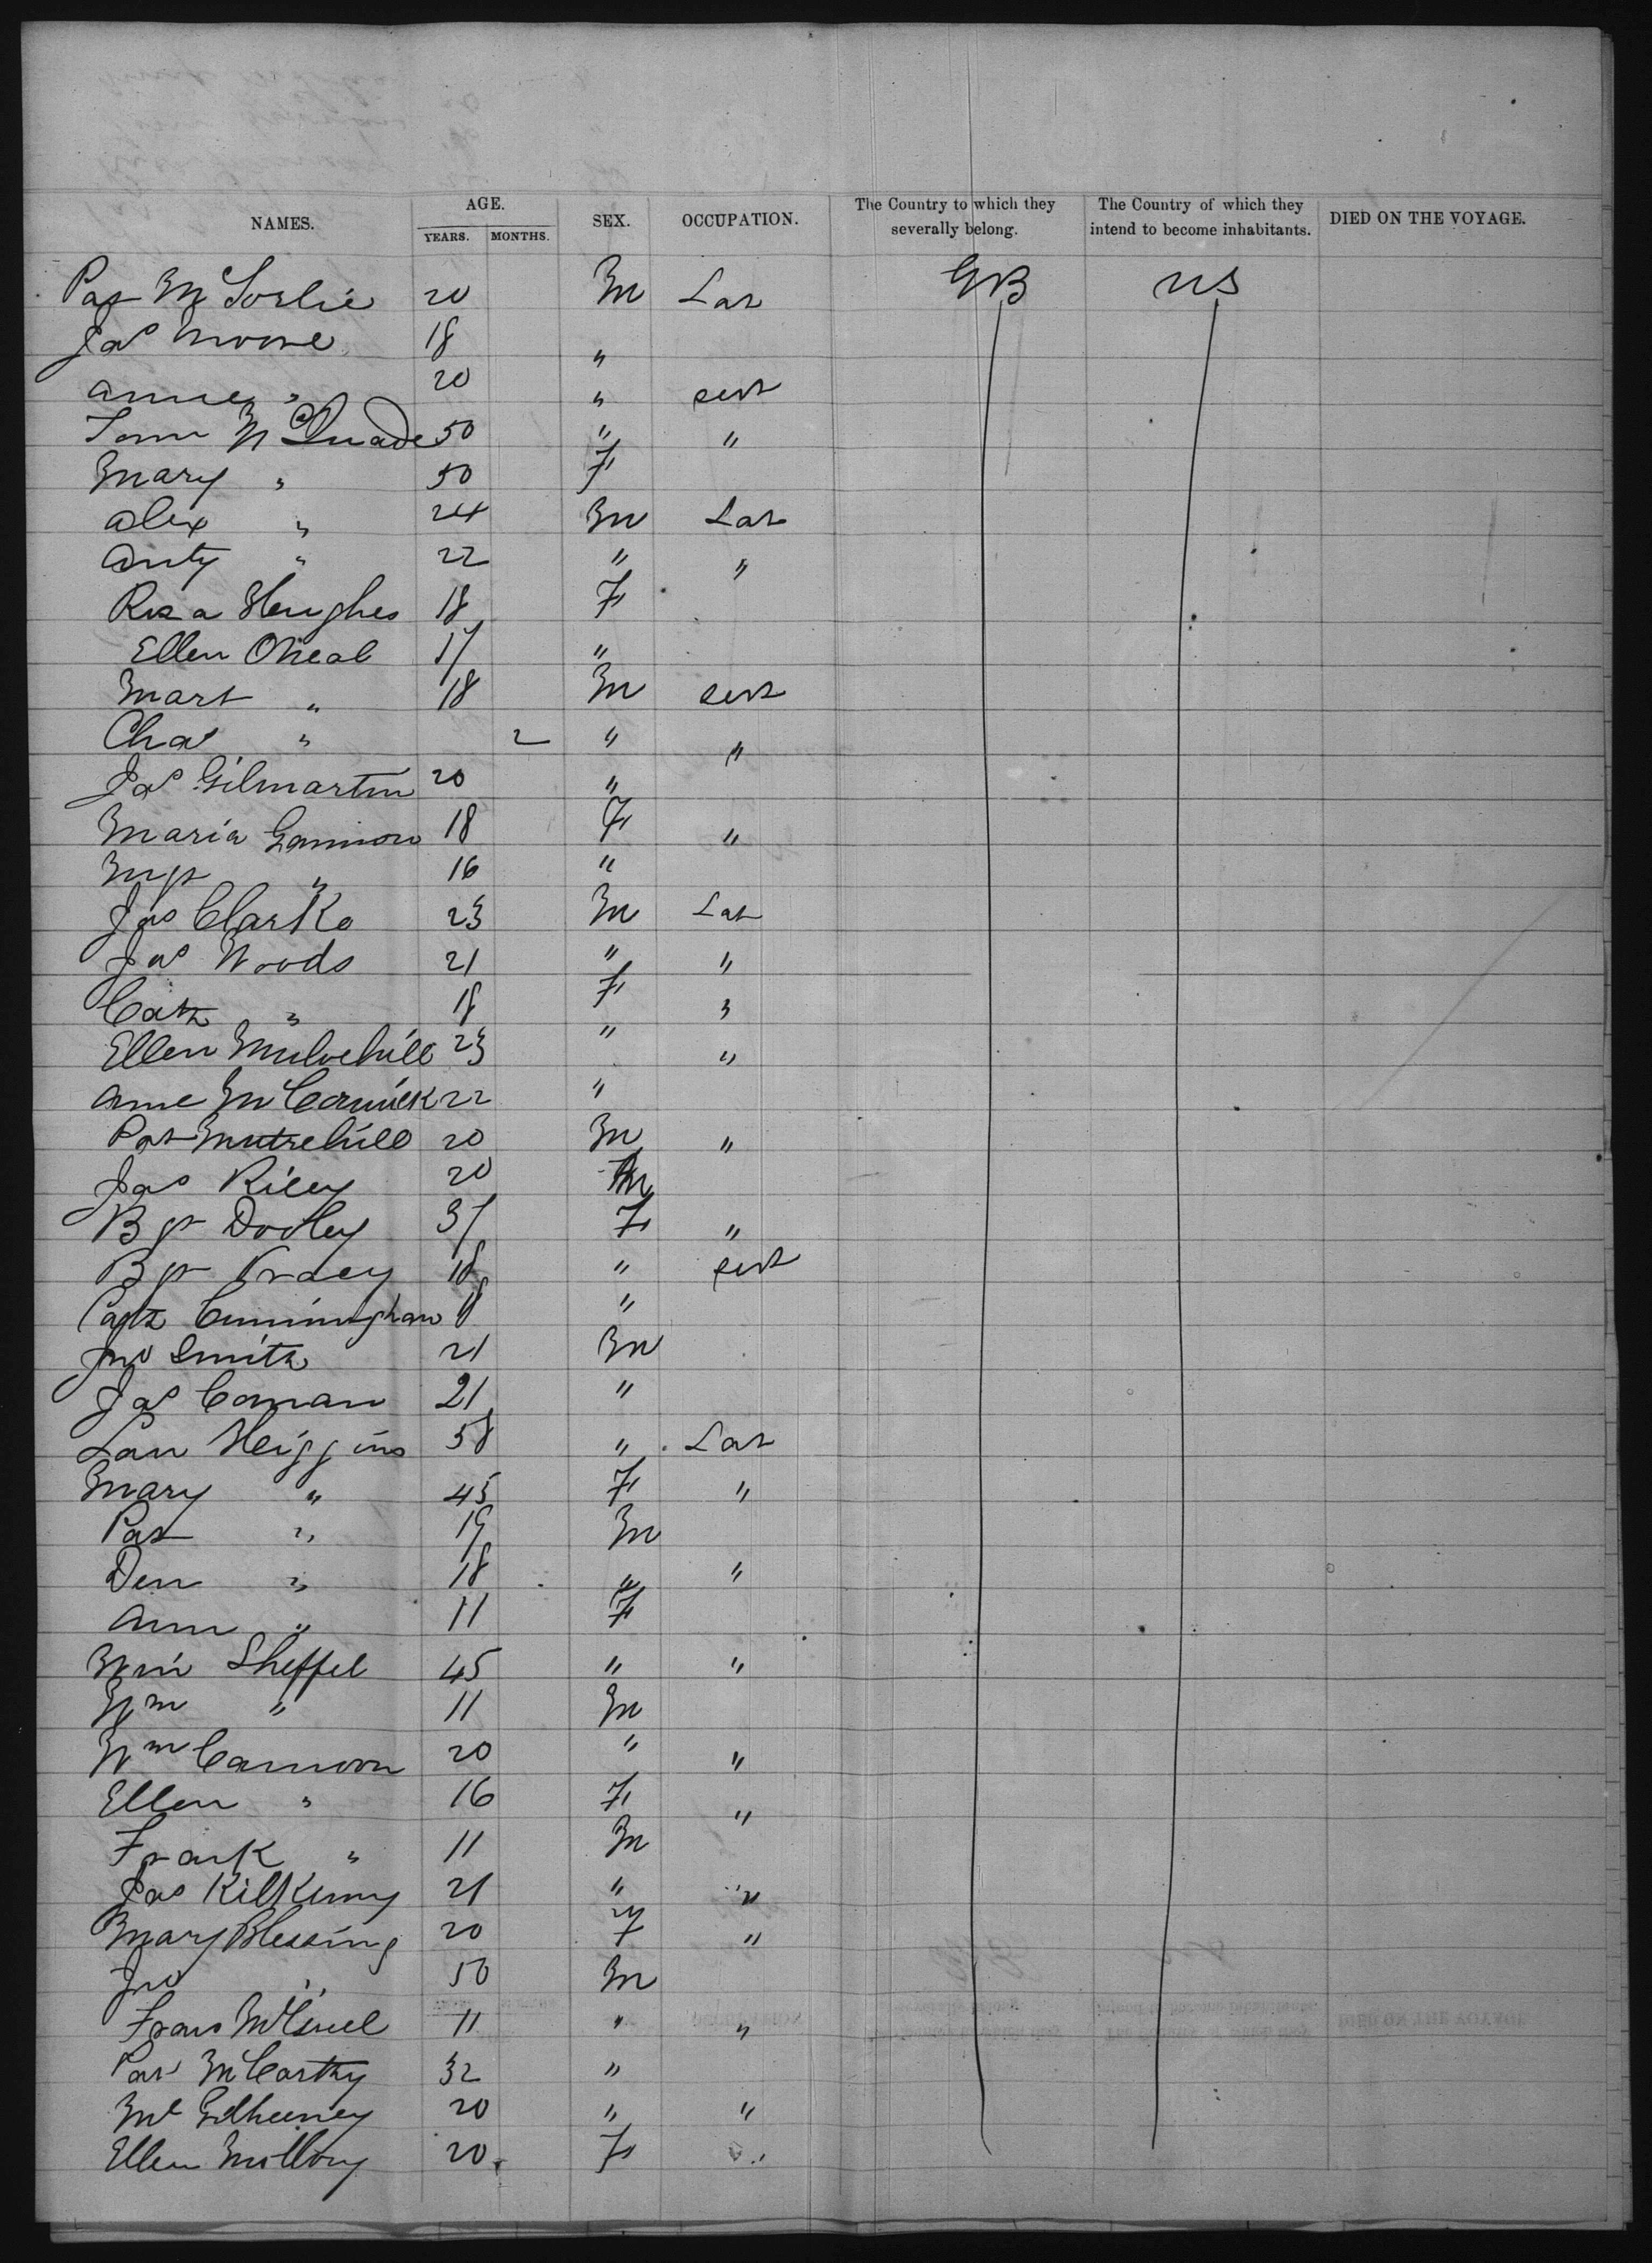 NAMES. AGE. YEARS. MONTHS. SEX. OCCUPATION. The Country to which they severally belong. The Country of which they intend to become inhabitants. DIED ON THE VOYAGE.
Pat McSorlie 20 M Lab GB US
Jas Moore 18 "
Anne " 20 " servt
McQuade 50 " "
Mary " 50 F
Alex " 24 M Lab
Anty " 22 " "
Rosa Hughes 18 F
Ellen ONeal 17 "
Mart " 18 M servt
Chas " 2 " "
Jas Gilmartin 20 "
Maria Gannon 18 F "
Mgt " 16 "
Jas Clarke 23 M Lab
Jas Woods 21 " "
Cath " 18 F "
Ellen Mulvehill 23 " "
Anne McCormick 22 "
Pat 20 M "
Jas Riley 20 M
Bgt Dooley 37 F "
Bgt Tracey 18 " servt
Cath Cunningham 18 "
Jno Smith 21 M
Jas Coman 21 "
Lau Heiggins 58 " Lab
Mary " 45 F "
Pat " 19 M
Den " 18 " "
Ann " 11 F
Win Sheffel 45 " "
Wm " 11 M
Wm Cannon 20 " "
Ellen " 16 F "
Frank " 11 M
Jas Kilkenny 21 " "
Mary Blessing 20 F "
Jno " 50 M
Frans 11 " "
Pat McCarthy 32 "
Ml Gilheeney 20 " "
Ellen Mollony 20 F "